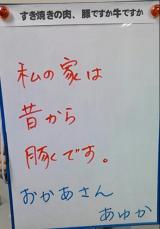 すき焼きの肉、豚ですか牛ですか
私の家は
昔から
豚くです。
おかあさん
あゆか